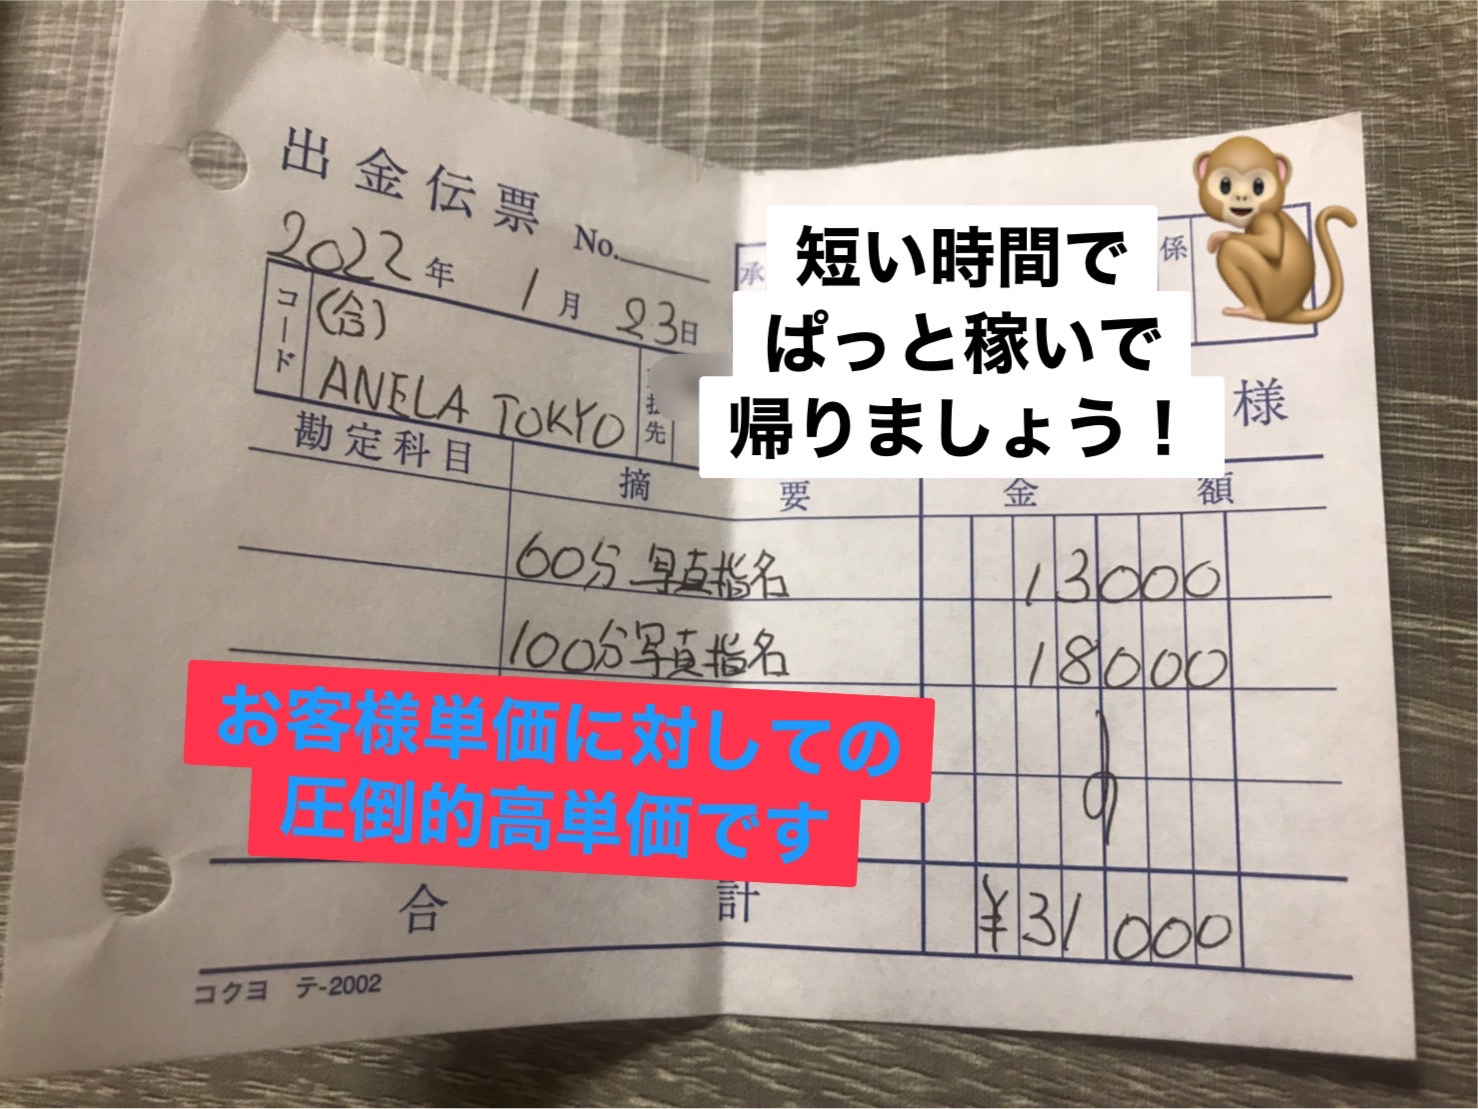 出金伝票 No.
2022年 1月 23日
承
係
コード
(合)
ANELA TOKYO
先
様
短い時間で
ぱっと稼いで
帰りましょう！
勘定科目
摘要
金額
60分 写真指名 13000
100分写真指名 18000
お客様単価に対しての
圧倒的高単価です
合計 ¥31000
コクヨ テ-2002